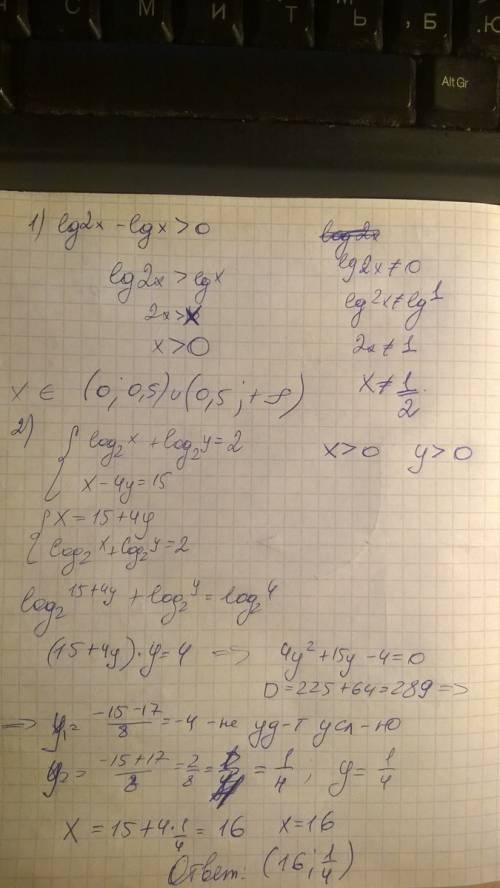 С М И Т Ь Б Ю
AltGr
1) lg2x - lgx > 0
lg2x > lgx
2x > x
x > 0
x ∈ (0; 0,5) ∪ (0,5; +∞)
lg2x ≠ 0
lg2x ≠ lg1
2x ≠ 1
x ≠ 1/2
2) { log₂x + log₂y = 2
x - 4y = 15
x > 0 y > 0
{ x = 15 + 4y
log₂x + log₂y = 2
log₂ 15+4y + log₂y = log₂4
(15+4y)·y = 4 => 4y² + 15y - 4 = 0
D = 225 + 64 = 289 =>
=> y₁ = (-15 - 17)/8 = -4 - не уд-т усл-ю
y₂ = (-15 + 17)/8 = 2/8 = 1/4, y = 1/4
x = 15 + 4·1/4 = 16 x = 16
Ответ: (16; 1/4)